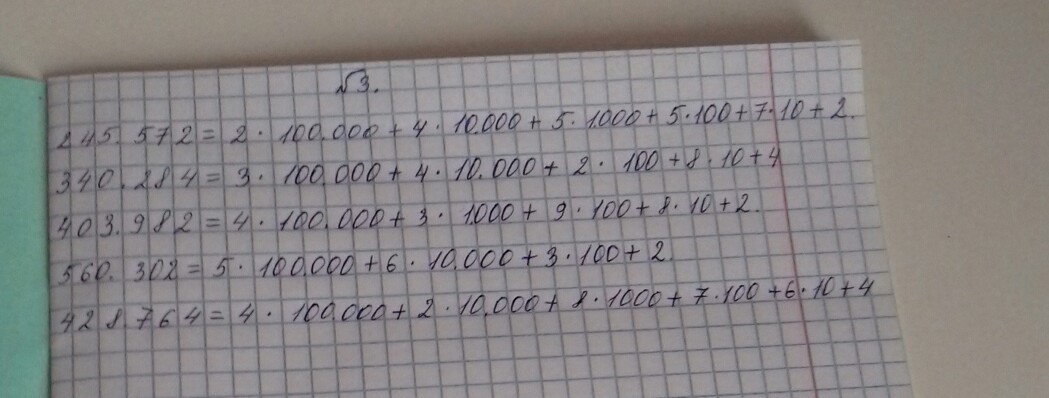 √3.
245.572 = 2 · 100.000 + 4 · 10.000 + 5 · 1.000 + 5 · 100 + 7 · 10 + 2.
340.284 = 3 · 100.000 + 4 · 10.000 + 2 · 100 + 8 · 10 + 4
403.982 = 4 · 100.000 + 3 · 1000 + 9 · 100 + 8 · 10 + 2.
560.302 = 5 · 100.000 + 6 · 10.000 + 3 · 100 + 2.
428.764 = 4 · 100.000 + 2 · 10.000 + 8 · 1000 + 7 · 100 + 6 · 10 + 4